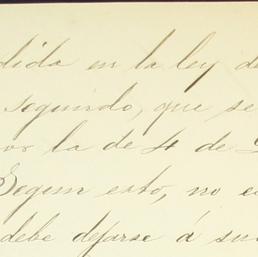 dida en la ley de
segundo, que se
por la de 4 de
Segun esto, no
debe dejarse á su